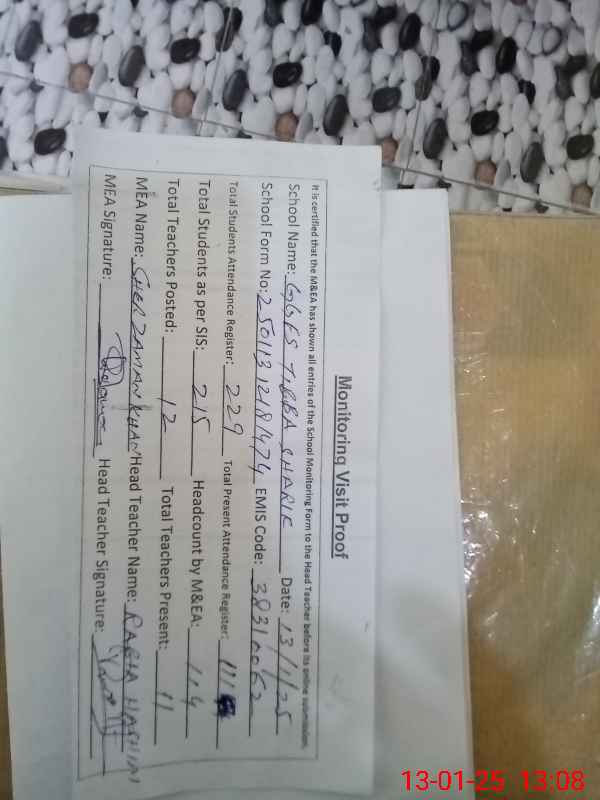 Monitoring Visit Proof
It is certified that the M&EA has shown all entries of the School Monitoring Form to the Head Teacher before its online submission.
School Name: GGES TIBBA SHARIF Date: 13/1/25
School Form No: 25011312181474 EMIS Code: 38310062
Total Students Attendance Register: 229 Total Present Attendance Register: 111
Total Students as per SIS: 215 Headcount by M&EA: 104
Total Teachers Posted: 12 Total Teachers Present: 11
MEA Name: SHER ZAMAN KHAN Head Teacher Name: RABIA HASHIM
MEA Signature: Head Teacher Signature:
13-01-25 13:08